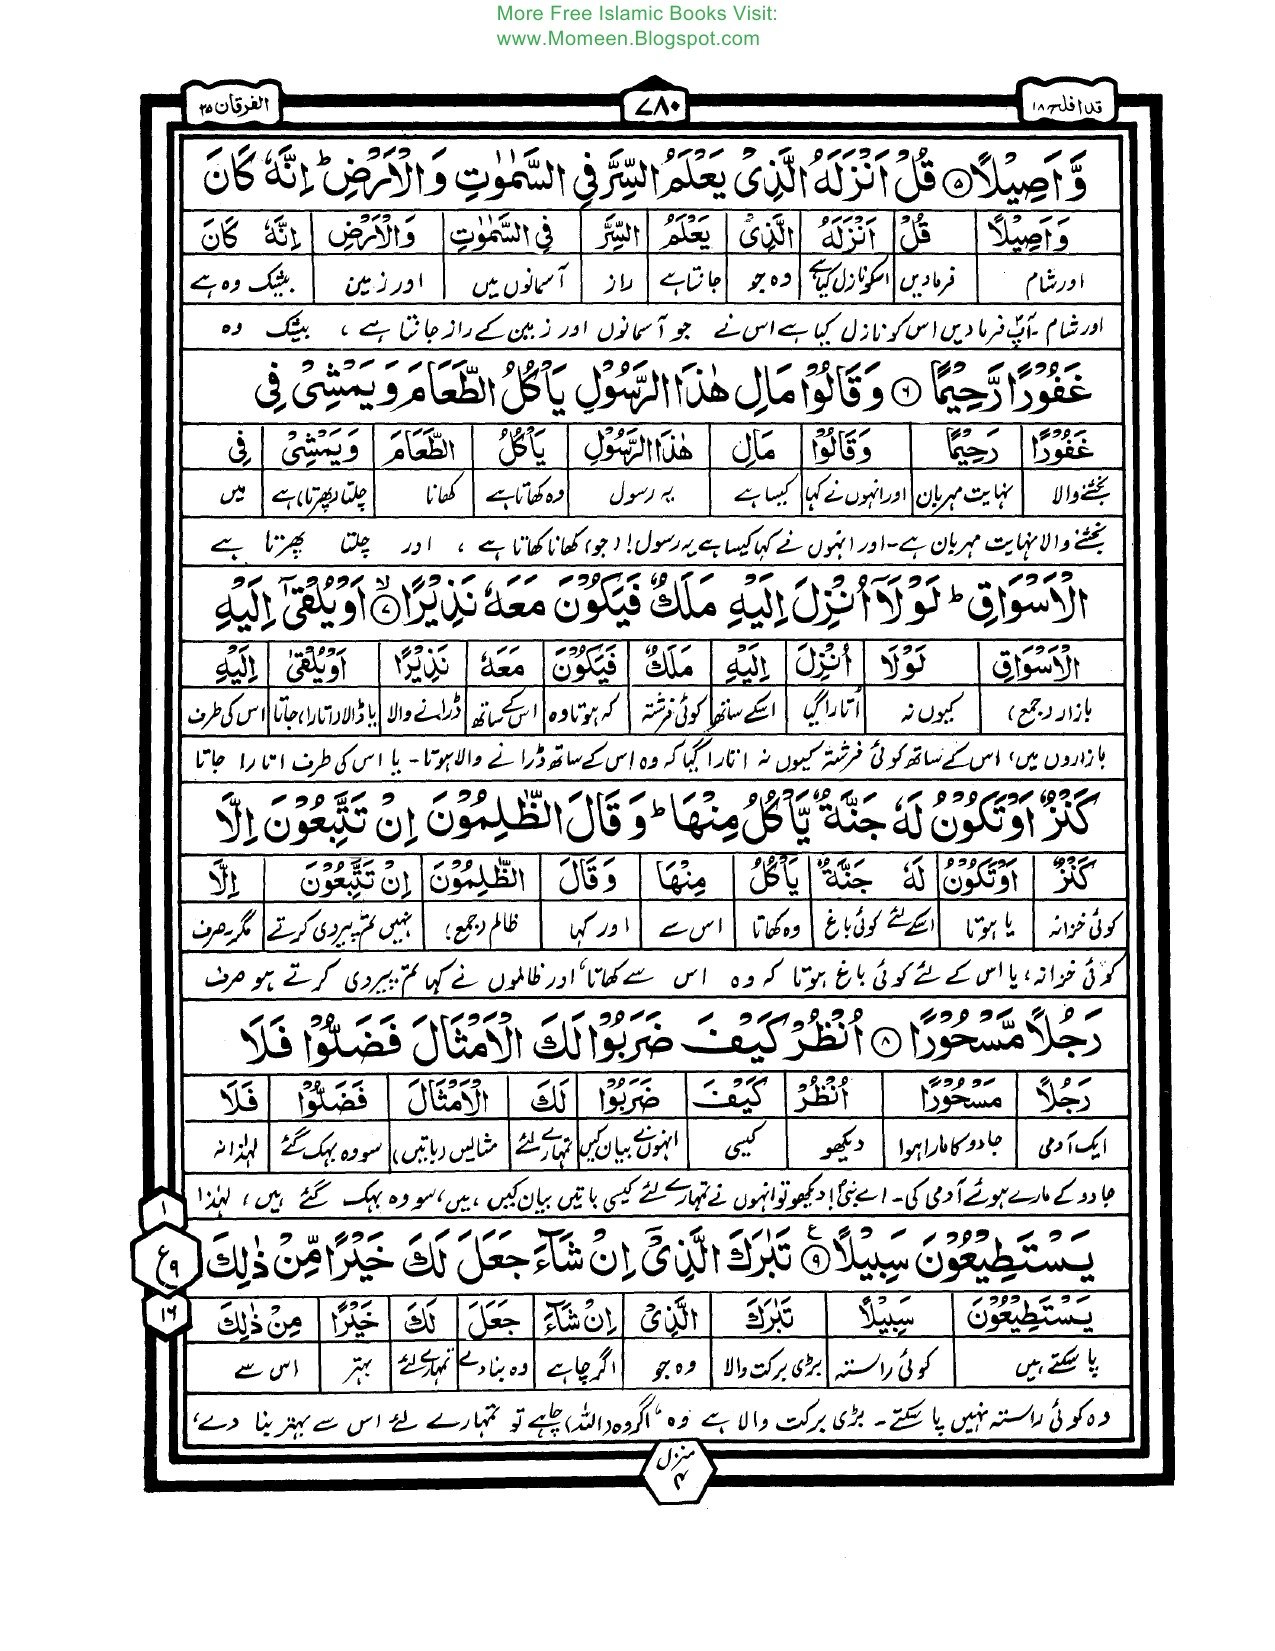 More Free Islamic Books Visit:
www.Momeen.Blogspot.com
قد افلح ۱۸
۷۸۰
الفرقان ۲۵
وَّاَصِيْلًا ۵ قُلْ اَنْزَلَهُ الَّذِىْ يَعْلَمُ السِّرَّ فِى السَّمٰوٰتِ وَالْاَرْضِ ؕ اِنَّهٗ كَانَ
وَاَصِيْلًا قُلْ اَنْزَلَهُ الَّذِىْ يَعْلَمُ السِّرَّ فِى السَّمٰوٰتِ وَالْاَرْضِ اِنَّهٗ كَانَ
اور شام فرمادیں اسکو نازل کیا ہے وہ جو جانتا ہے راز آسمانوں میں اور زمین بیشک وہ ہے
اور شام ۔ آپؐ فرمادیں اس کو نازل کیا ہے اس نے جو آسمانوں اور زمین کے راز جانتا ہے ، بیشک وہ
غَفُوْرًا رَّحِيْمًا ۶ وَقَالُوْا مَالِ هٰذَا الرَّسُوْلِ يَاْكُلُ الطَّعَامَ وَيَمْشِىْ فِى
غَفُوْرًا رَحِيْمًا وَقَالُوْا مَالِ هٰذَا الرَّسُوْلِ يَاْكُلُ الطَّعَامَ وَيَمْشِىْ فِى
بخشنے والا نہایت مہربان اور انہوں نے کہا کیسا ہے یہ رسول وہ کھاتا ہے کھانا چلتا (پھرتا) ہے میں
بخشنے والا نہایت مہربان ہے ۔ اور انہوں نے کہا کیسا ہے یہ رسول! (جو) کھانا کھاتا ہے ، اور چلتا پھرتا ہے
الْاَسْوَاقِ ؕ لَوْلَآ اُنْزِلَ اِلَيْهِ مَلَكٌ فَيَكُوْنَ مَعَهٗ نَذِيْرًا ۙ۷ اَوْ يُلْقٰٓى اِلَيْهِ
الْاَسْوَاقِ لَوْلَا اُنْزِلَ اِلَيْهِ مَلَكٌ فَيَكُوْنَ مَعَهٗ نَذِيْرًا اَوْ يُلْقٰى اِلَيْهِ
بازار (جمع) کیوں نہ اُتارا گیا اسکے ساتھ کوئی فرشتہ کہ ہوتا وہ اس کے ساتھ ڈرانے والا یا ڈالا (اتارا) جاتا اس کی طرف
بازاروں میں، اس کے ساتھ کوئی فرشتہ کیوں نہ اتارا گیا کہ وہ اس کے ساتھ ڈرانے والا ہوتا ۔ یا اس کی طرف اتارا جاتا
كَنْزٌ اَوْ تَكُوْنُ لَهٗ جَنَّةٌ يَّاْكُلُ مِنْهَا ؕ وَقَالَ الظّٰلِمُوْنَ اِنْ تَتَّبِعُوْنَ اِلَّا
كَنْزٌ اَوْ تَكُوْنُ لَهٗ جَنَّةٌ يَاْكُلُ مِنْهَا وَقَالَ الظّٰلِمُوْنَ اِنْ تَتَّبِعُوْنَ اِلَّا
کوئی خزانہ یا ہوتا اسکے لئے کوئی باغ وہ کھاتا اس سے اور کہا ظالم (جمع) نہیں تم پیروی کرتے مگر ۔ صرف
کوئی خزانہ، یا اس کے لئے کوئی باغ ہوتا کہ وہ اس سے کھاتا، اور ظالموں نے کہا تم پیروی کرتے ہو صرف
رَجُلًا مَّسْحُوْرًا ۸ اُنْظُرْ كَيْفَ ضَرَبُوْا لَكَ الْاَمْثَالَ فَضَلُّوْا فَلَا
رَجُلًا مَسْحُوْرًا اُنْظُرْ كَيْفَ ضَرَبُوْا لَكَ الْاَمْثَالَ فَضَلُّوْا فَلَا
ایک آدمی جادو کا مارا ہوا دیکھو کیسی انہوں نے بیان کیں تمہارے لئے مثالیں (باتیں) سو وہ بہک گئے لہٰذا نہ
جادو کے مارے ہوئے آدمی کی ۔ اے نبیؐ! دیکھو تو انہوں نے تمہارے لئے کیسی باتیں بیان کیں ہیں، سو وہ بہک گئے ہیں، لہٰذا
يَسْتَطِيْعُوْنَ سَبِيْلًا ۹ۧ تَبٰرَكَ الَّذِىْٓ اِنْ شَآءَ جَعَلَ لَكَ خَيْرًا مِّنْ ذٰلِكَ
يَسْتَطِيْعُوْنَ سَبِيْلًا تَبٰرَكَ الَّذِىْ اِنْ شَآءَ جَعَلَ لَكَ خَيْرًا مِنْ ذٰلِكَ
پا سکتے ہیں کوئی راستہ بڑی برکت والا وہ جو اگر چاہے وہ بنا دے تمہارے لئے بہتر اس سے
وہ کوئی راستہ نہیں پا سکتے ۔ بڑی برکت والا ہے وہ، اگر وہ (اللہ) چاہے تو تمہارے لئے اس سے بہتر بنا دے،
۱
ع ۹
۱۶
منزل ۴